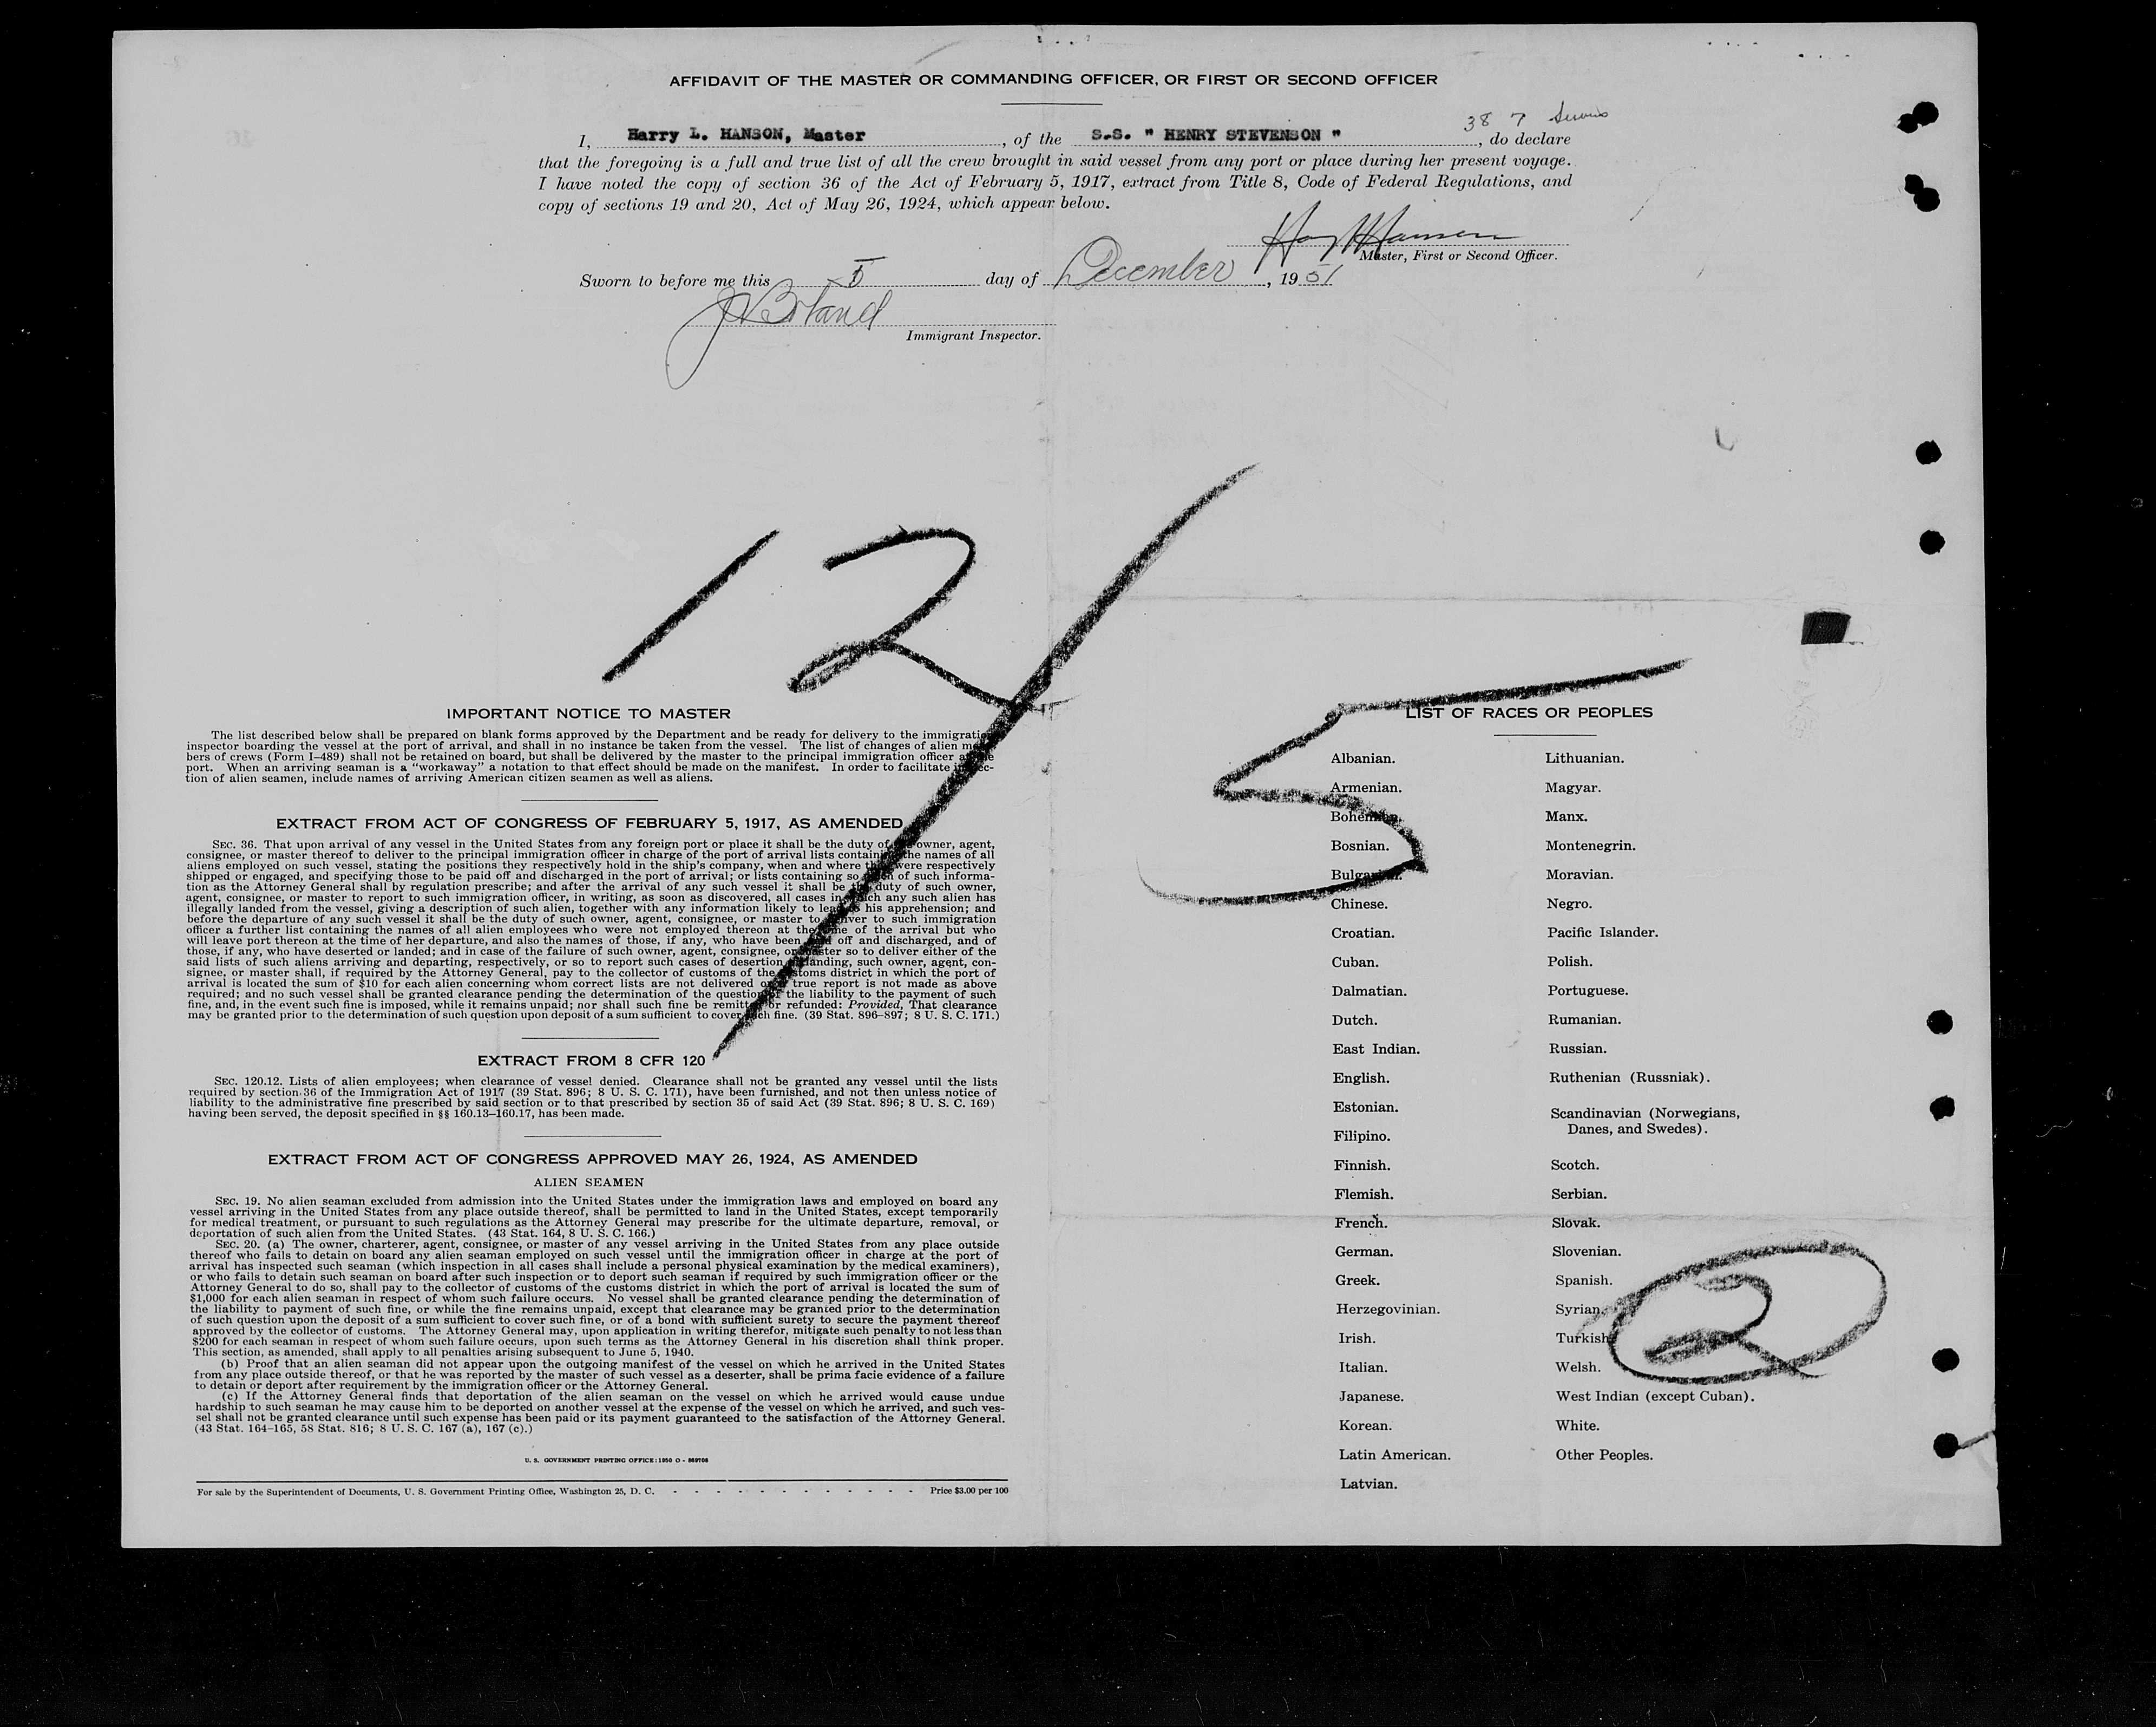 AFFIDAVIT OF THE MASTER OR COMMANDING OFFICER, OR FIRST OR SECOND OFFICER
38 7
I, Harry L. HANSON, Master, of the S.S. " HENRY STEVENSON ", do declare
that the foregoing is a full and true list of all the crew brought in said vessel from any port or place during her present voyage.
I have noted the copy of section 36 of the Act of February 5, 1917, extract from Title 8, Code of Federal Regulations, and
copy of sections 19 and 20, Act of May 26, 1924, which appear below.
Master, First or Second Officer.
Sworn to before me this 5 day of December, 1951
Immigrant Inspector.
12/5
IMPORTANT NOTICE TO MASTER
The list described below shall be prepared on blank forms approved by the Department and be ready for delivery to the
inspector boarding the vessel at the port of arrival, and shall in no instance be taken from the vessel. The list of changes of alien
bers of crews (Form I–489) shall not be retained on board, but shall be delivered by the master to the principal immigration officer
port. When an arriving seaman is a "workaway" a notation to that effect should be made on the manifest. In order to facilitate
tion of alien seamen, include names of arriving American citizen seamen as well as aliens.
EXTRACT FROM ACT OF CONGRESS OF FEBRUARY 5, 1917, AS AMENDED
SEC. 36. That upon arrival of any vessel in the United States from any foreign port or place it shall be the duty of owner, agent,
consignee, or master thereof to deliver to the principal immigration officer in charge of the port of arrival lists containing the names of all
aliens employed on such vessel, stating the positions they respectively hold in the ship's company, when and where they were respectively
shipped or engaged, and specifying those to be paid off and discharged in the port of arrival; or lists containing so of such informa-
tion as the Attorney General shall by regulation prescribe; and after the arrival of any such vessel it shall be the duty of such owner,
agent, consignee, or master to report to such immigration officer, in writing, as soon as discovered, all cases in which any such alien has
illegally landed from the vessel, giving a description of such alien, together with any information likely to lead to his apprehension; and
before the departure of any such vessel it shall be the duty of such owner, agent, consignee, or master to deliver to such immigration
officer a further list containing the names of all alien employees who were not employed thereon at the time of the arrival but who
will leave port thereon at the time of her departure, and also the names of those, if any, who have been paid off and discharged, and of
those, if any, who have deserted or landed; and in case of the failure of such owner, agent, consignee, or master so to deliver either of the
said lists of such aliens arriving and departing, respectively, or so to report such cases of desertion or landing, such owner, agent, con-
signee, or master shall, if required by the Attorney General, pay to the collector of customs of the customs district in which the port of
arrival is located the sum of $10 for each alien concerning whom correct lists are not delivered or a true report is not made as above
required; and no such vessel shall be granted clearance pending the determination of the question of the liability to the payment of such
fine, and, in the event such fine is imposed, while it remains unpaid; nor shall such fine be remitted or refunded: Provided, That clearance
may be granted prior to the determination of such question upon deposit of a sum sufficient to cover such fine. (39 Stat. 896–897; 8 U. S. C. 171.)
EXTRACT FROM 8 CFR 120
SEC. 120.12. Lists of alien employees; when clearance of vessel denied. Clearance shall not be granted any vessel until the lists
required by section 36 of the Immigration Act of 1917 (39 Stat. 896; 8 U. S. C. 171), have been furnished, and not then unless notice of
liability to the administrative fine prescribed by said section or to that prescribed by section 35 of said Act (39 Stat. 896; 8 U. S. C. 169)
having been served, the deposit specified in §§ 160.13–160.17, has been made.
EXTRACT FROM ACT OF CONGRESS APPROVED MAY 26, 1924, AS AMENDED
ALIEN SEAMEN
SEC. 19. No alien seaman excluded from admission into the United States under the immigration laws and employed on board any
vessel arriving in the United States from any place outside thereof, shall be permitted to land in the United States, except temporarily
for medical treatment, or pursuant to such regulations as the Attorney General may prescribe for the ultimate departure, removal, or
deportation of such alien from the United States. (43 Stat. 164, 8 U. S. C. 166.)
SEC. 20. (a) The owner, charterer, agent, consignee, or master of any vessel arriving in the United States from any place outside
thereof who fails to detain on board any alien seaman employed on such vessel until the immigration officer in charge at the port of
arrival has inspected such seaman (which inspection in all cases shall include a personal physical examination by the medical examiners),
or who fails to detain such seaman on board after such inspection or to deport such seaman if required by such immigration officer or the
Attorney General to do so, shall pay to the collector of customs of the customs district in which the port of arrival is located the sum of
$1,000 for each alien seaman in respect of whom such failure occurs. No vessel shall be granted clearance pending the determination of
the liability to payment of such fine, or while the fine remains unpaid, except that clearance may be granted prior to the determination
of such question upon the deposit of a sum sufficient to cover such fine, or of a bond with sufficient surety to secure the payment thereof
approved by the collector of customs. The Attorney General may, upon application in writing therefor, mitigate such penalty to not less than
$200 for each seaman in respect of whom such failure occurs, upon such terms as the Attorney General in his discretion shall think proper.
This section, as amended, shall apply to all penalties arising subsequent to June 5, 1940.
(b) Proof that an alien seaman did not appear upon the outgoing manifest of the vessel on which he arrived in the United States
from any place outside thereof, or that he was reported by the master of such vessel as a deserter, shall be prima facie evidence of a failure
to detain or deport after requirement by the immigration officer or the Attorney General.
(c) If the Attorney General finds that deportation of the alien seaman on the vessel on which he arrived would cause undue
hardship to such seaman he may cause him to be deported on another vessel at the expense of the vessel on which he arrived, and such ves-
sel shall not be granted clearance until such expense has been paid or its payment guaranteed to the satisfaction of the Attorney General.
(43 Stat. 164–165, 58 Stat. 816; 8 U. S. C. 167 (a), 167 (c).)
U. S. GOVERNMENT PRINTING OFFICE: 1950 O -
For sale by the Superintendent of Documents, U. S. Government Printing Office, Washington 25, D. C. - - - - - - - - - - - - Price $3.00 per 100
LIST OF RACES OR PEOPLES
Albanian.
Armenian.
Bohemian.
Bosnian.
Bulgarian.
Chinese.
Croatian.
Cuban.
Dalmatian.
Dutch.
East Indian.
English.
Estonian.
Filipino.
Finnish.
Flemish.
French.
German.
Greek.
Herzegovinian.
Irish.
Italian.
Japanese.
Korean.
Latin American.
Latvian.
Lithuanian.
Magyar.
Manx.
Montenegrin.
Moravian.
Negro.
Pacific Islander.
Polish.
Portuguese.
Rumanian.
Russian.
Ruthenian (Russniak).
Scandinavian (Norwegians,
Danes, and Swedes).
Scotch.
Serbian.
Slovak.
Slovenian.
Spanish.
Syrian.
Turkish.
Welsh.
West Indian (except Cuban).
White.
Other Peoples.
2